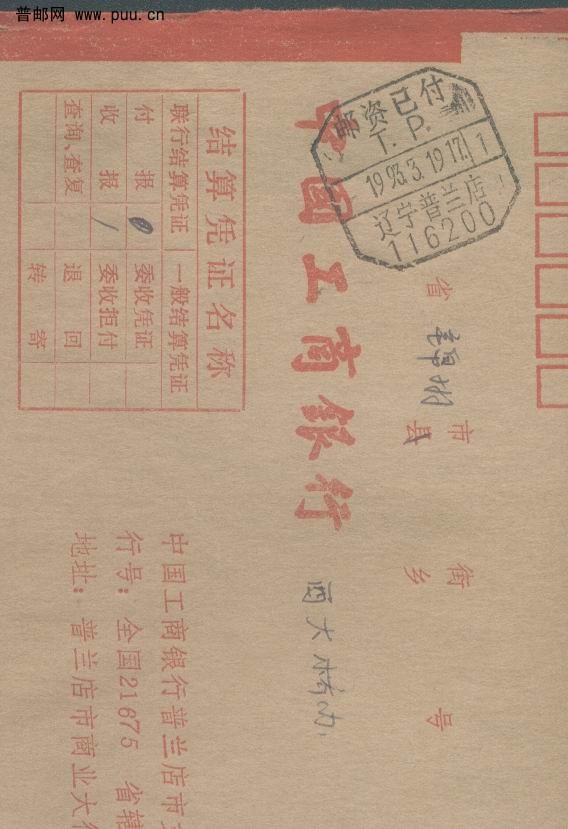 普邮网 www.puu.cn
邮资已付
T. P.
1993.3.19 17. 1
辽宁普兰店
116200
省
市
县
街
乡
号
中国工商银行
西大桥办
结算凭证名称
联行结算凭证 一般结算凭证
付报 委收凭证
收报 / 委收拒付
查询、查复 退回
转答
中国工商银行普兰店市
行号：全国21675 省辖
地址：普兰店市商业大